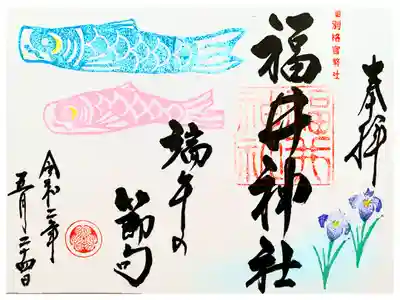 奉拝
旧別格官幣社
福井神社
福井
神社
端午の
節句
令和二年
五月二十四日